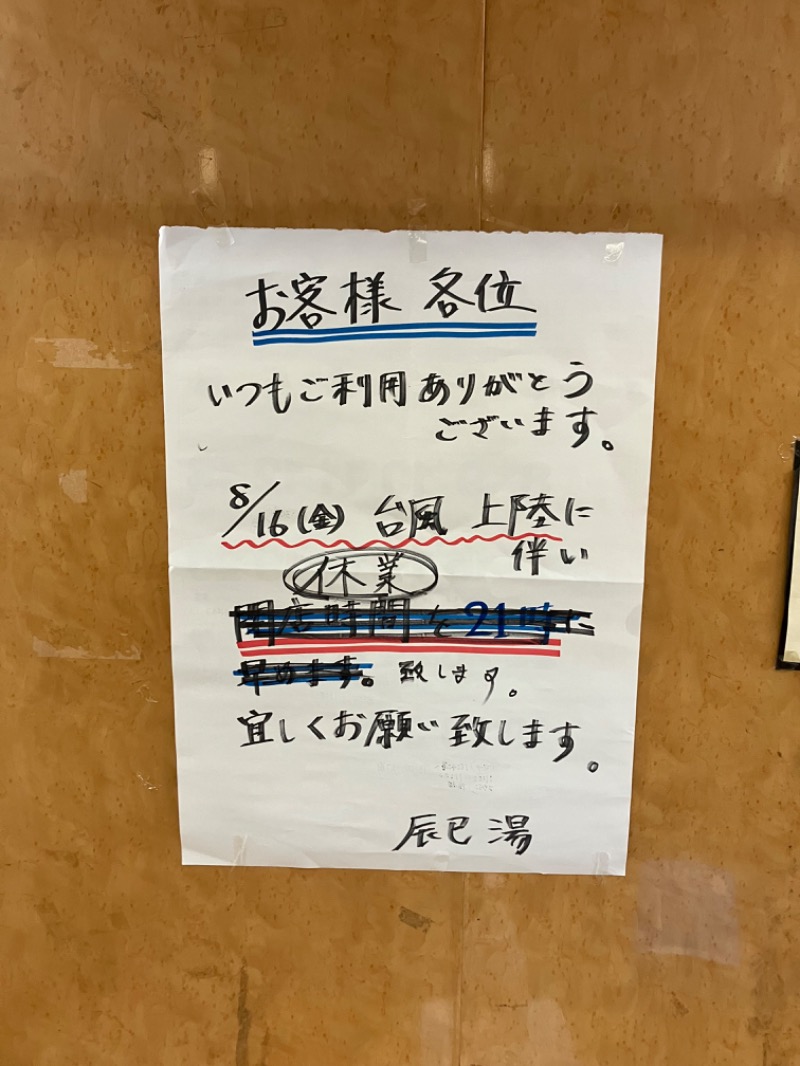 お客様 各位
いつもご利用ありがとう
ございます。
8/16(金) 台風 上陸に
伴い
休業
閉店時間を21時に
早めます。致します。
宜しくお願い致します。
辰巳湯